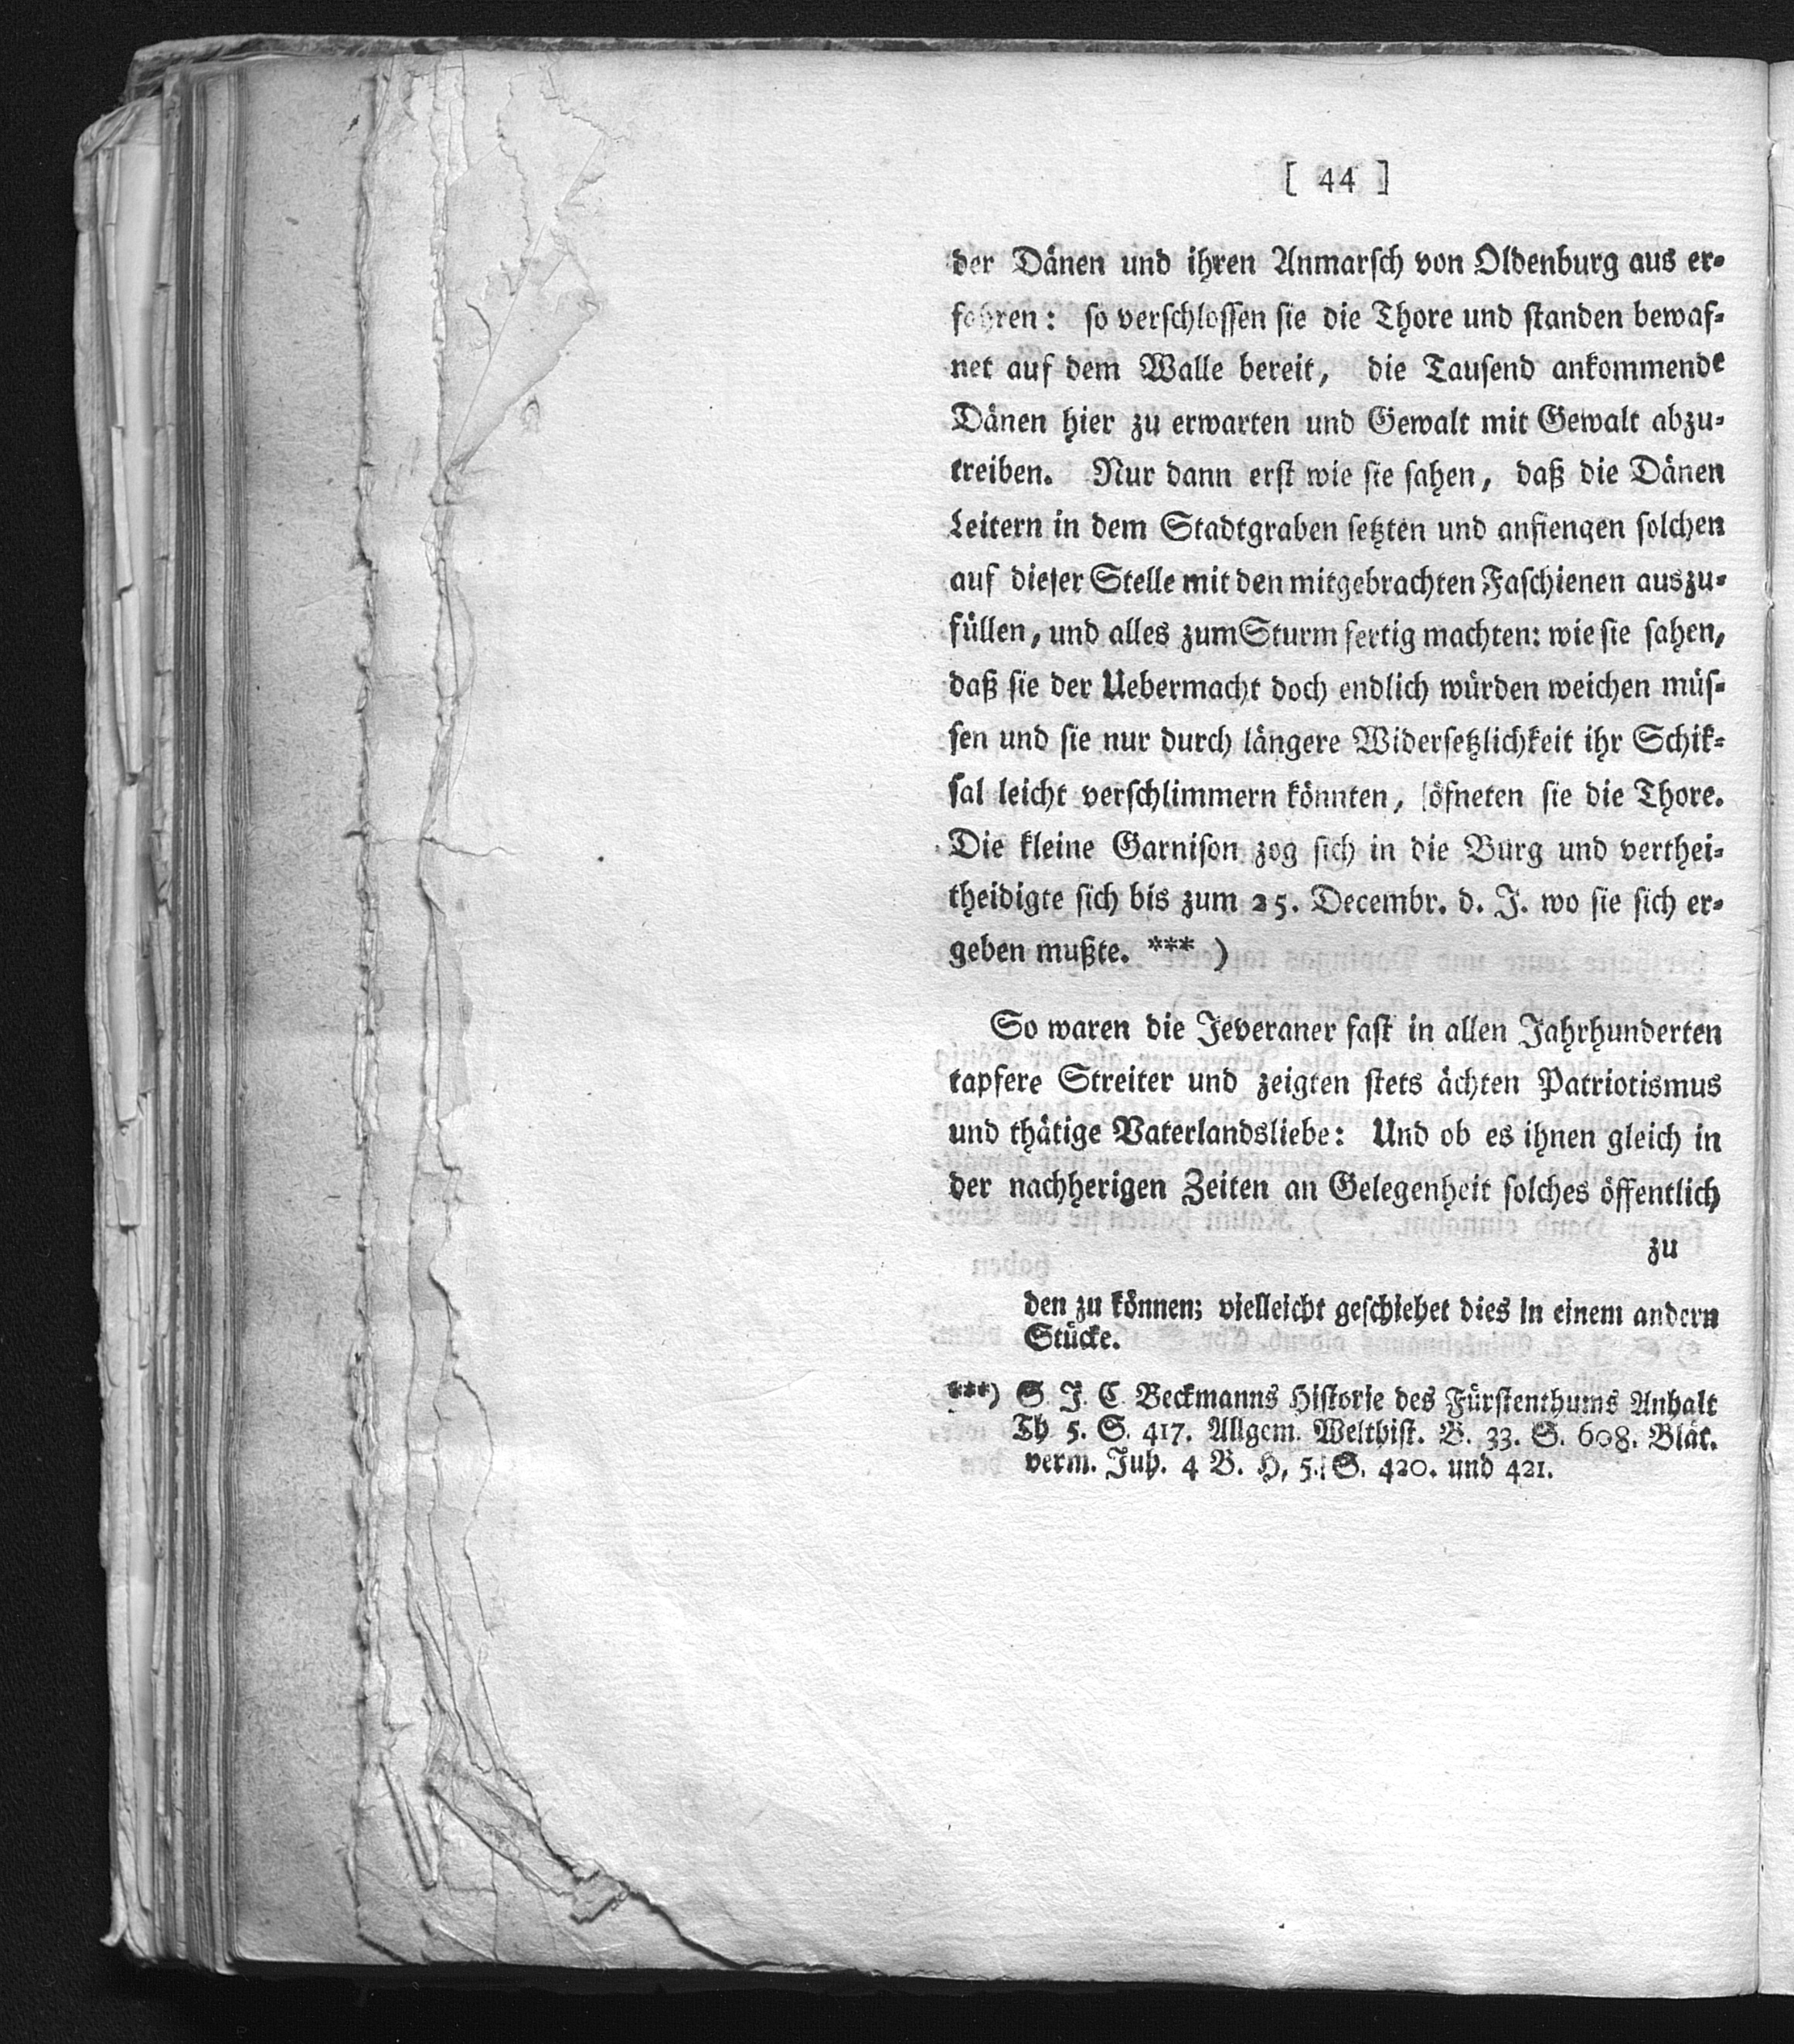 [ 44 ]
der Dänen und ihren Anmarsch von Oldenburg aus er-
fahren: so verschlossen sie die Thore und standen bewaf-
net auf dem Walle bereit, die Tausend ankommende
Dänen hier zu erwarten und Gewalt mit Gewalt abzu-
treiben. Nur dann erst wie sie sahen, daß die Dänen
Leitern in dem Stadtgraben setzten und anfiengen solchen
auf dieser Stelle mit den mitgebrachten Faschienen auszu-
füllen, und alles zum Sturm fertig machten: wie sie sahen,
daß sie der Uebermacht doch endlich würden weichen müs-
sen und sie nur durch längere Widersetzlichkeit ihr Schik-
sal leicht verschlimmern könnten, öfneten sie die Thore.
Die kleine Garnison zog sich in die Burg und verthei-
theidigte sich bis zum 25. Decembr. d. J. wo sie sich er-
geben mußte. *** )
So waren die Jeveraner fast in allen Jahrhunderten
tapfere Streiter und zeigten stets ächten Patriotismus
und thätige Vaterlandsliebe: Und ob es ihnen gleich in
der nachherigen Zeiten an Gelegenheit solches öffentlich
zu
den zu können; vielleicht geschiehet dies in einem andern
Stücke.
***) S. J. C. Beckmanns Historie des Fürstenthums Anhalt
Th 5. S. 417. Allgem. Welthist. B. 33. S. 608. Blät.
verm. Juh. 4 B. H, 5. S. 420. und 421.